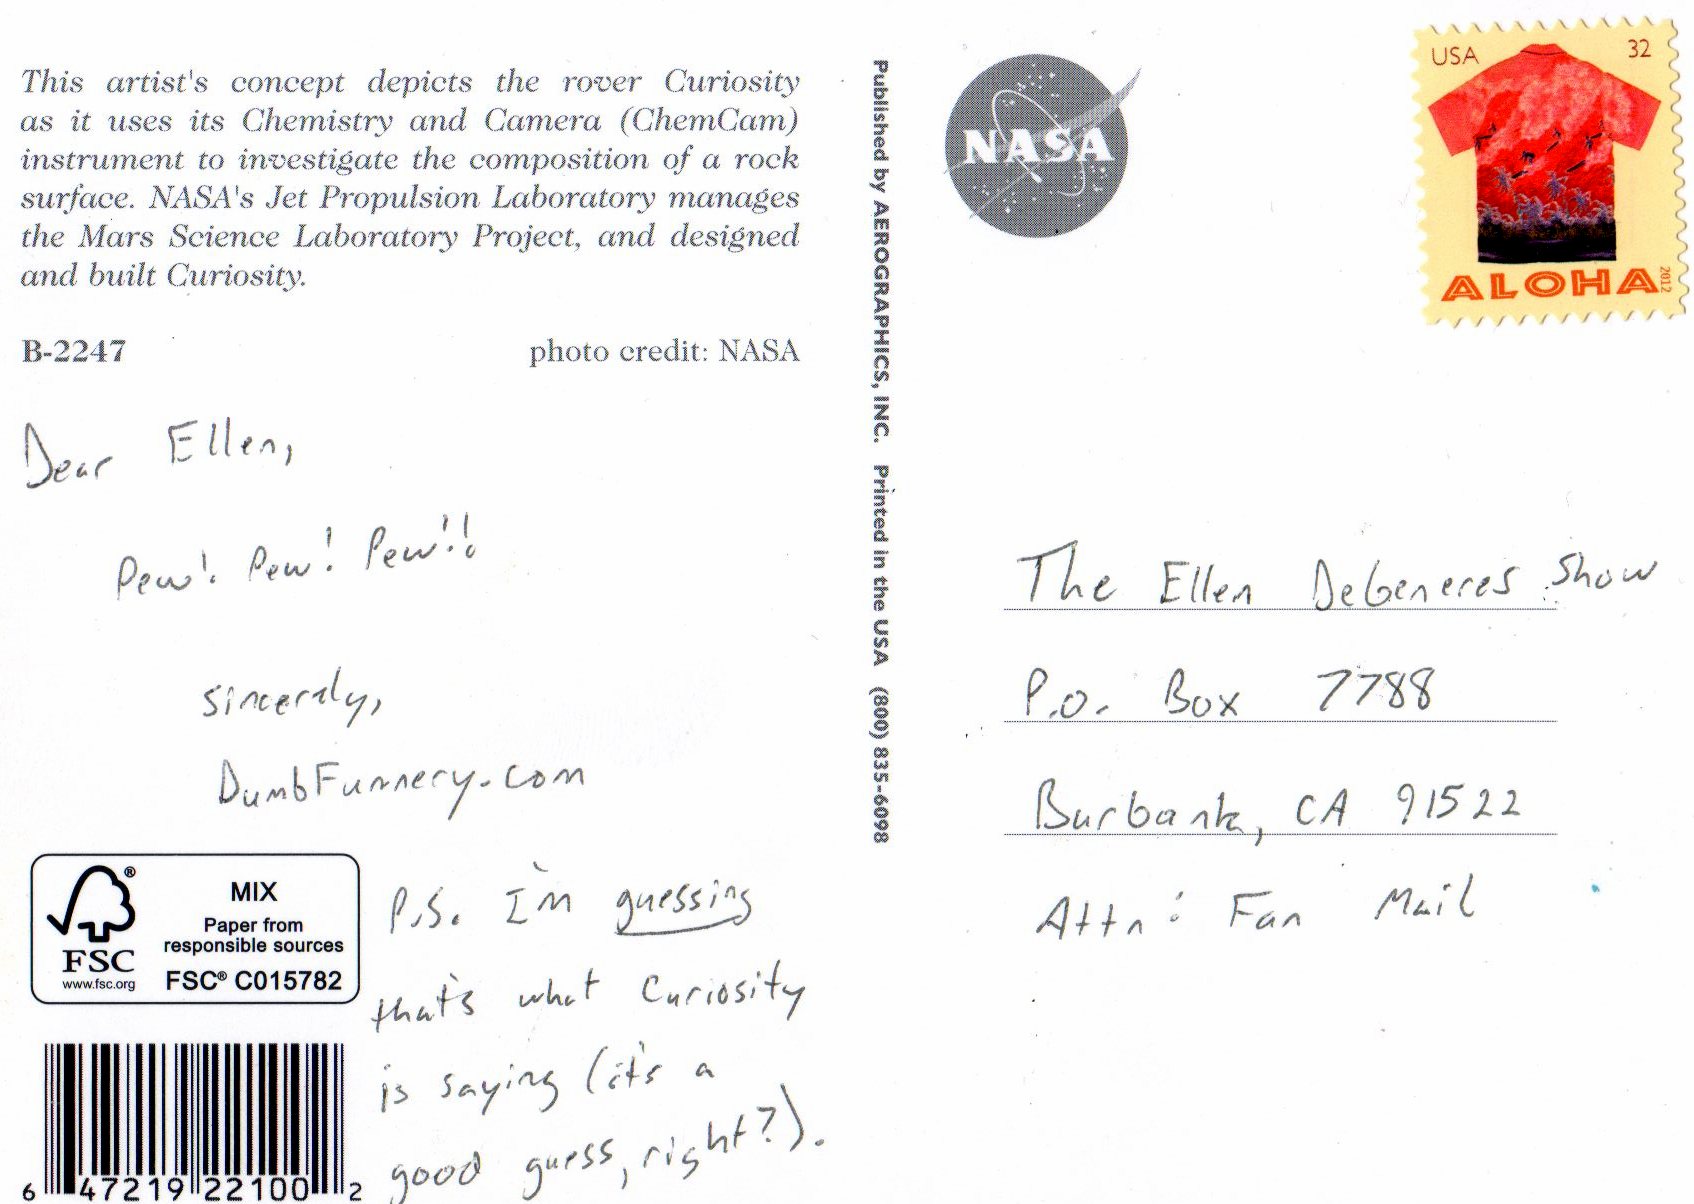 This artist's concept depicts the rover Curiosity
as it uses its Chemistry and Camera (ChemCam)
instrument to investigate the composition of a rock
surface. NASA's Jet Propulsion Laboratory manages
the Mars Science Laboratory Project, and designed
and built Curiosity.
B-2247 photo credit: NASA
Dear Ellen,
Pew! Pew! Pew!!
sincerely,
DumbFunnery.com
P.S. I'm guessing
that's what Curiosity
is saying (it's a
good guess, right?).
MIX
Paper from
responsible sources
FSC® C015782
®
FSC
www.fsc.org
6 47219 22100 2
Published by AEROGRAPHICS, INC. Printed in the USA (800) 835-6098
NASA
USA 32
ALOHA
2012
The Ellen DeGeneres Show
P.O. Box 7788
Burbank, CA 91522
Attn: Fan Mail